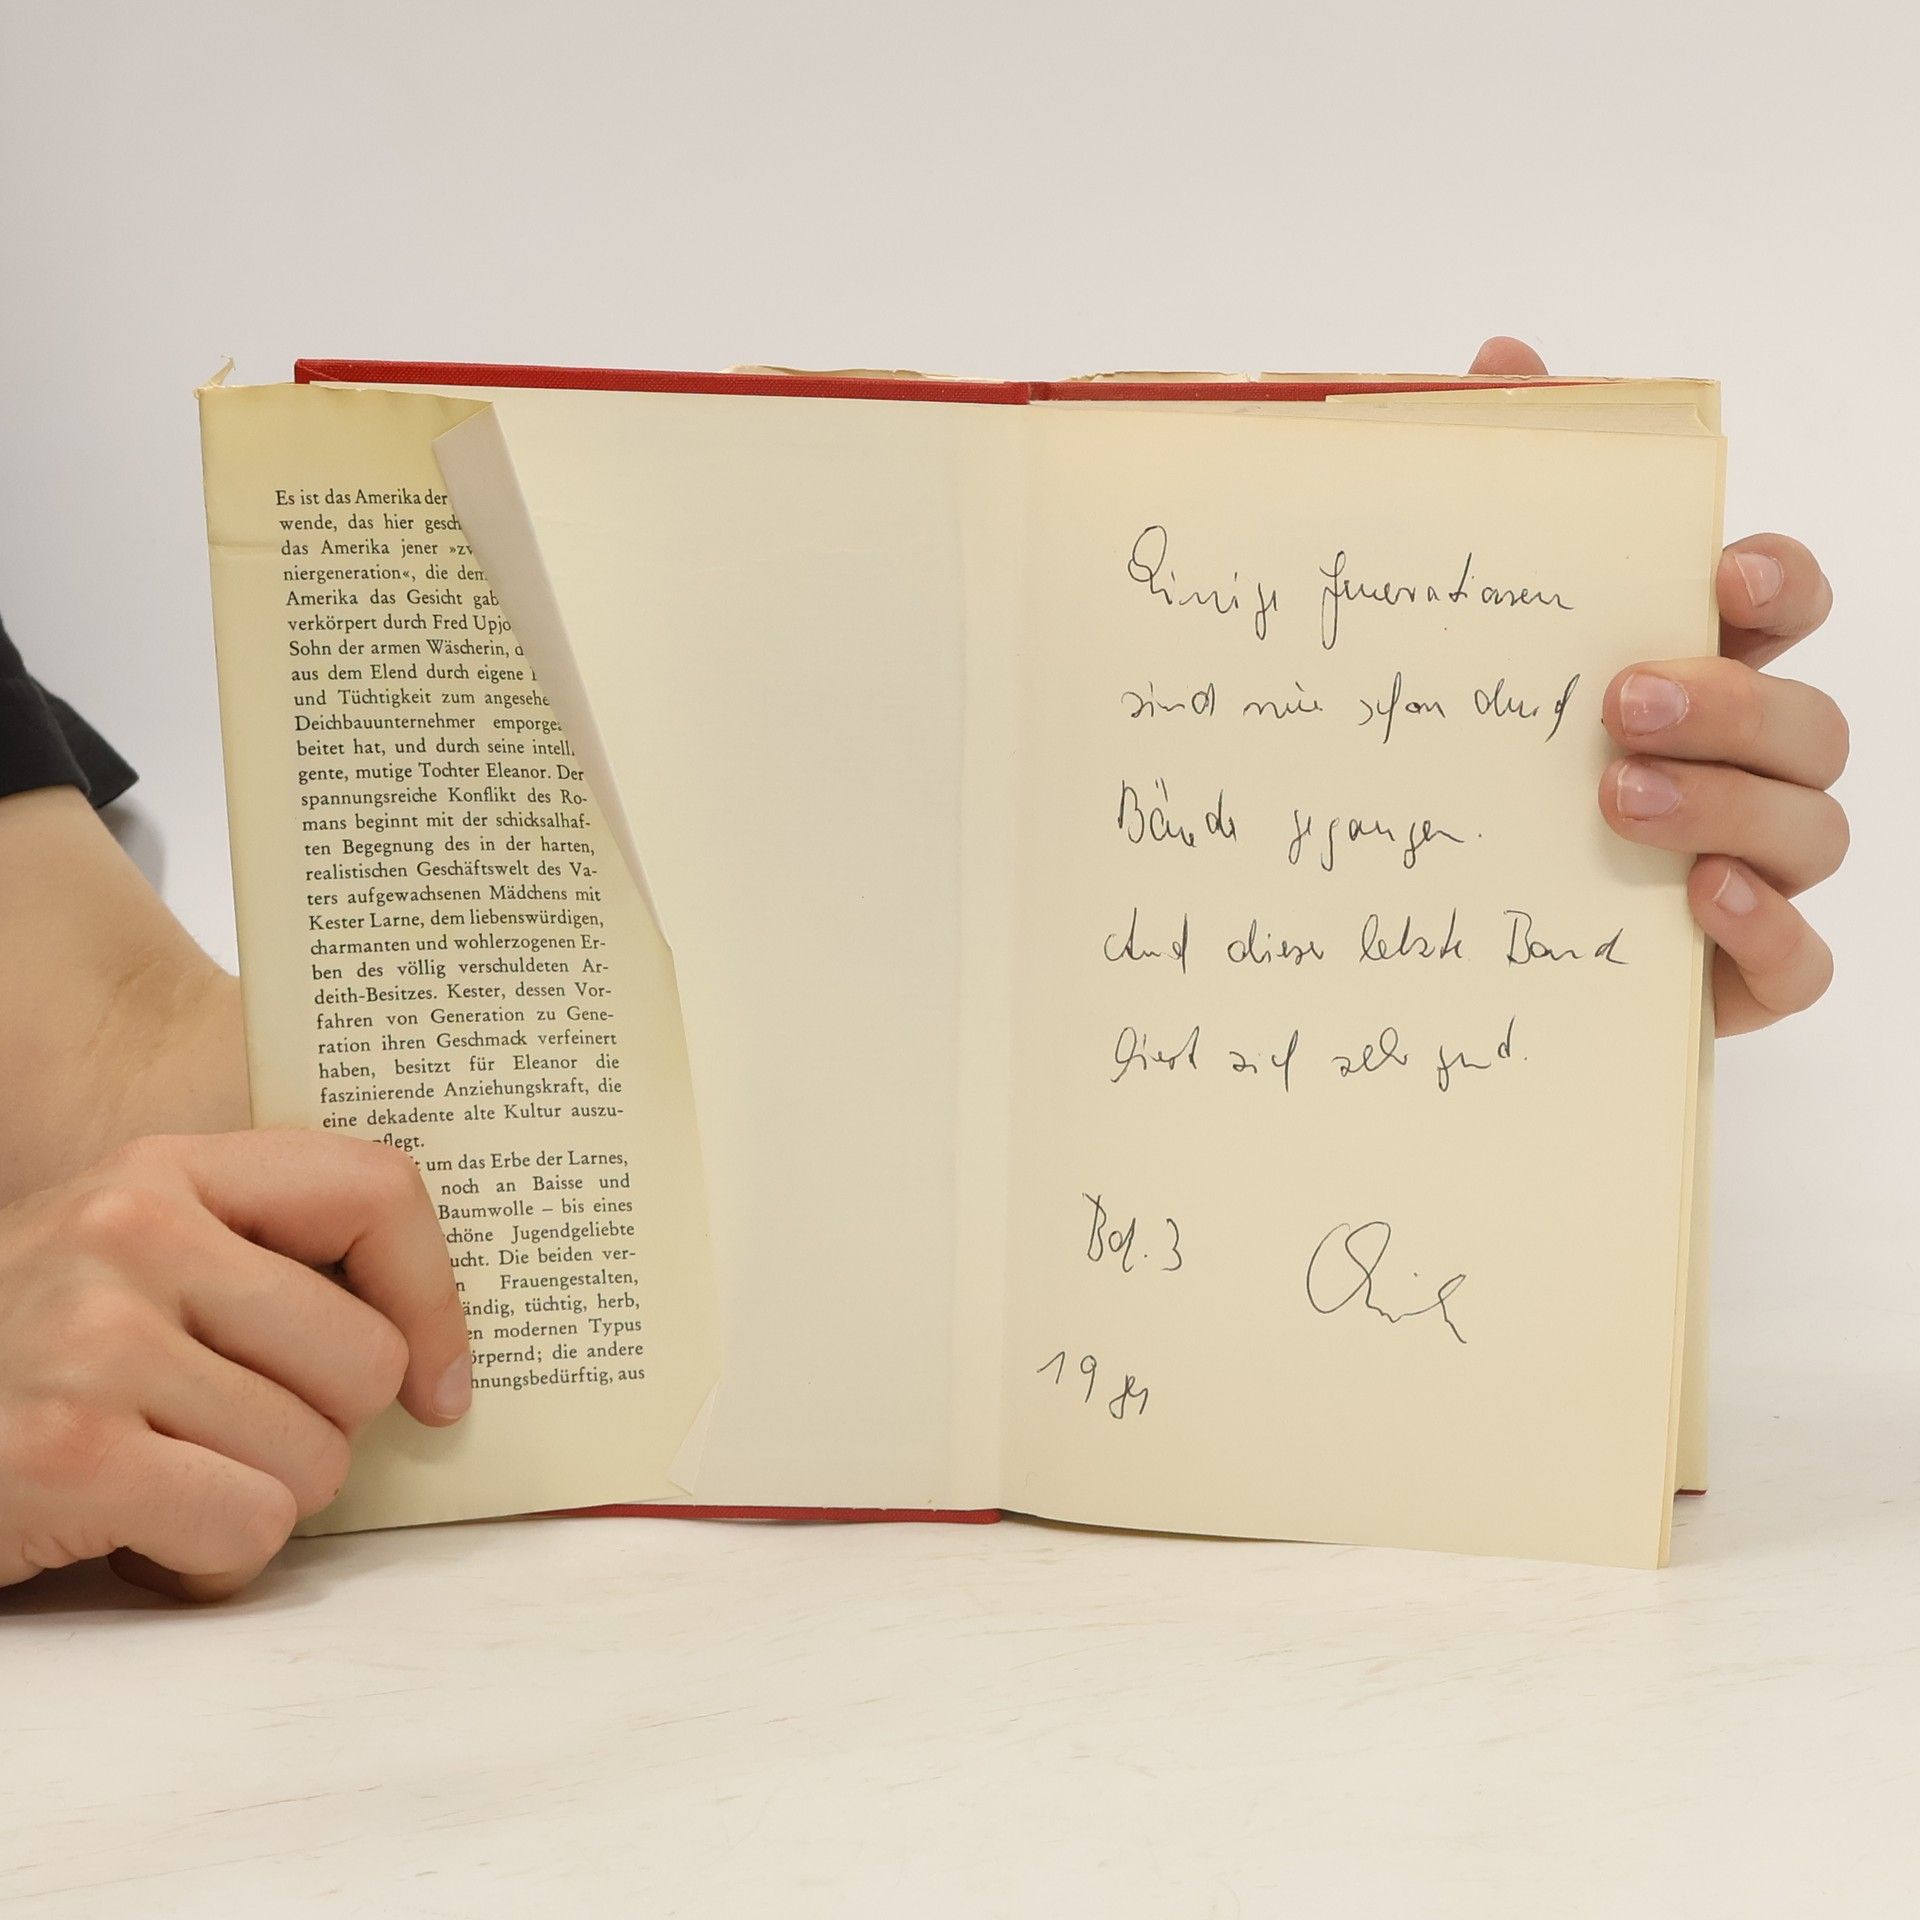 Es ist das Amerika der
wende, das hier gesch
das Amerika jener »zw
niergeneration«, die dem
Amerika das Gesicht gab
verkörpert durch Fred Upjo
Sohn der armen Wäscherin, d
aus dem Elend durch eigene
und Tüchtigkeit zum angesehe
Deichbauunternehmer emporge
beitet hat, und durch seine intell
gente, mutige Tochter Eleanor. Der
spannungsreiche Konflikt des Ro-
mans beginnt mit der schicksalhaf-
ten Begegnung des in der harten,
realistischen Geschäftswelt des Va-
ters aufgewachsenen Mädchens mit
Kester Larne, dem liebenswürdigen,
charmanten und wohlerzogenen Er-
ben des völlig verschuldeten Ar-
deith-Besitzes. Kester, dessen Vor-
fahren von Generation zu Gene-
ration ihren Geschmack verfeinert
haben, besitzt für Eleanor die
faszinierende Anziehungskraft, die
eine dekadente alte Kultur auszu-
pflegt.
um das Erbe der Larnes,
noch an Baisse und
Baumwolle – bis eines
chöne Jugendgeliebte
ucht. Die beiden ver-
n Frauengestalten,
ändig, tüchtig, herb,
en modernen Typus
örpernd; die andere
hnungsbedürftig, aus
Einige Generationen
sind mir schon durch
Bände gegangen.
Auch dieser letzte Band
liest sich sehr gut.
Bd. 3
19